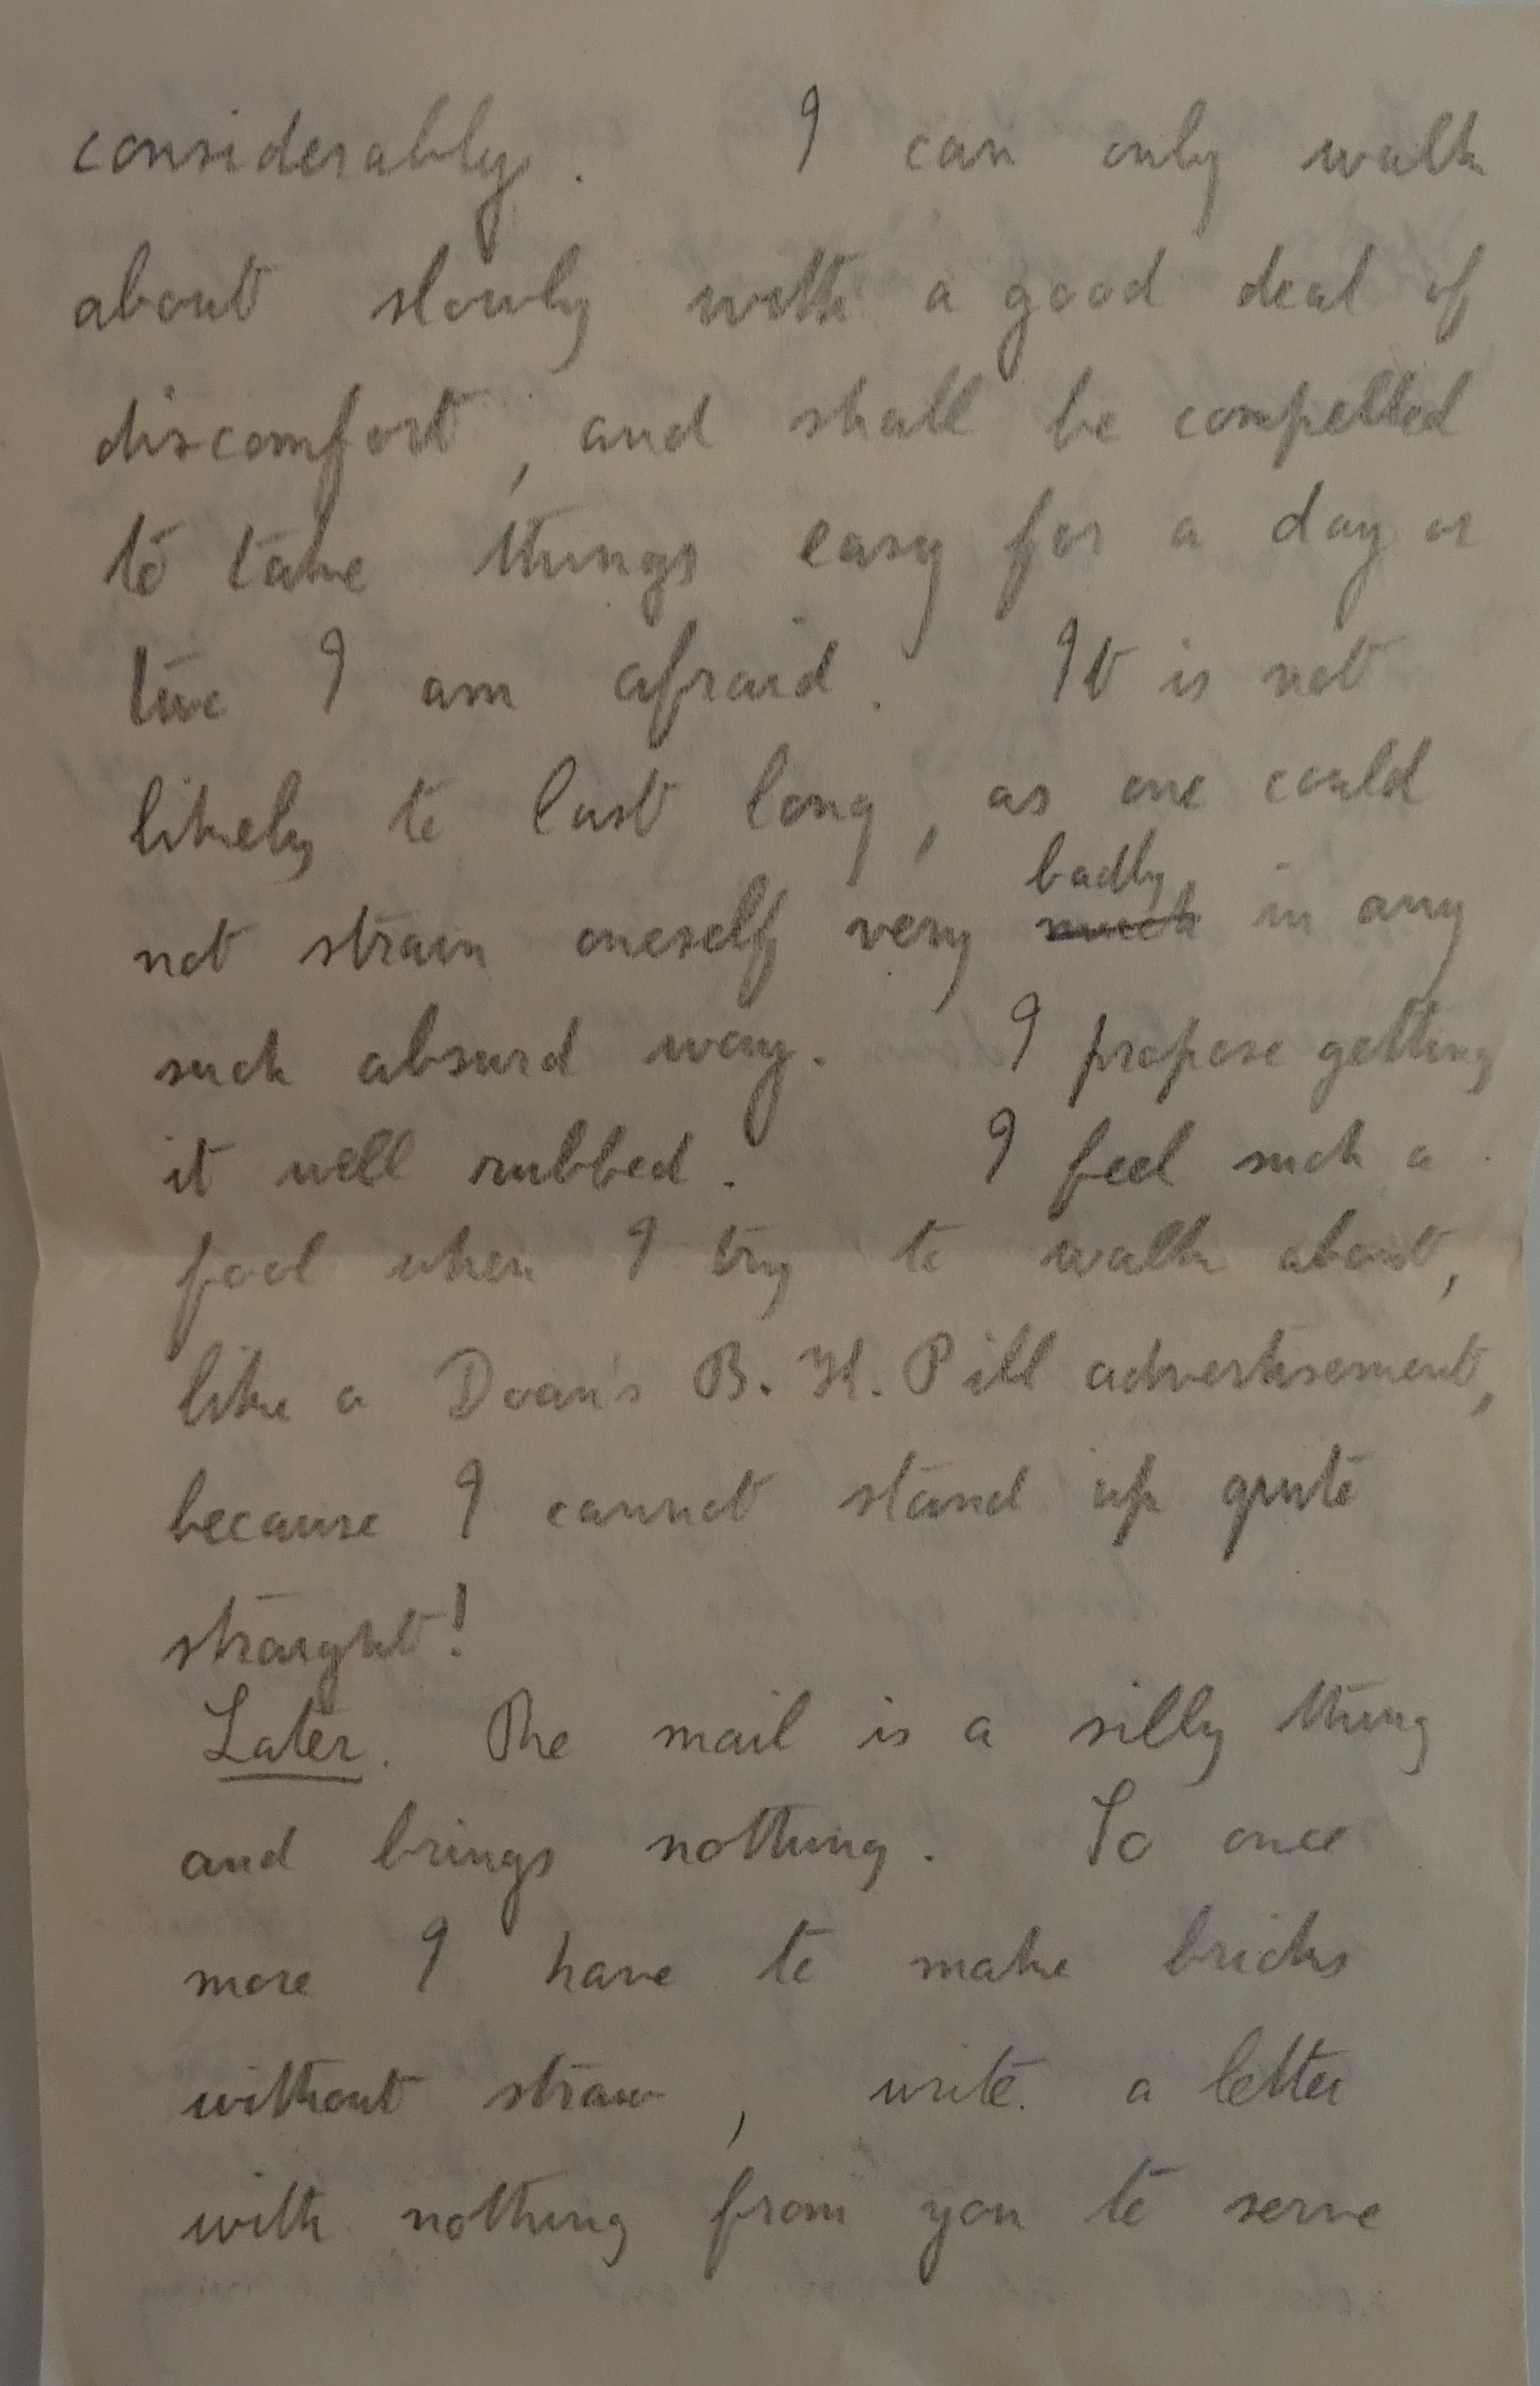 considerably. I can only walk
about slowly with a good deal of
discomfort, and shall be compelled
to take things easy for a day or
two I am afraid. It is not
likely to last long, as one could
badly
not strain oneself very much in any
such absurd way. I propose getting
it well rubbed. I feel such a
fool when I try to walk about,
like a Doan's B. K. Pill advertisement,
because I cannot stand up quite
straight!
Later. The mail is a silly thing
and brings nothing. So once
more I have to make bricks
without straw, write a letter
with nothing from you to serve